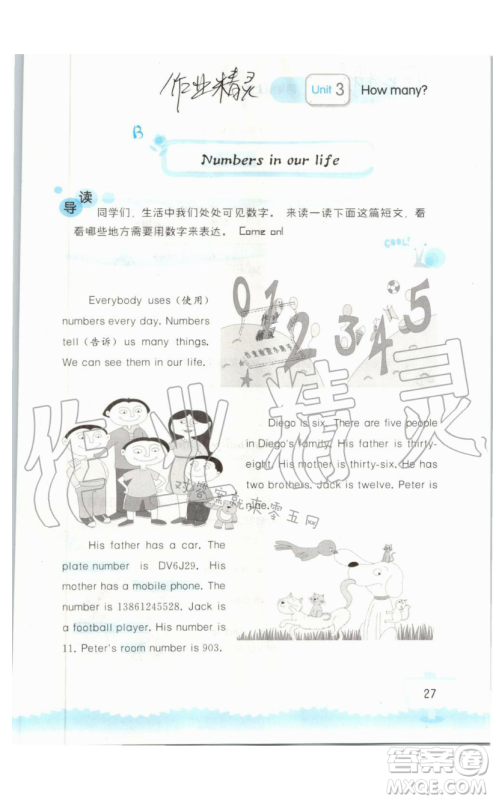 作业精灵
Unit 3 How many?
B
Numbers in our life
导读
同学们，生活中我们处处可见数字。 来读一读下面这篇短文，看
看哪些地方需要用数字来表达。 Come on!
COOL!
Everybody uses（使用）
numbers every day. Numbers
tell（告诉）us many things.
We can see them in our life.
0 1 2 3 4 5
作业精灵
Diego is six. There are five people
in Diego's family. His father is thirty-
eight. His mother is thirty-six. He has
two brothers. Jack is twelve. Peter is
nine.
对答案就来零五网
His father has a car. The
plate number is DV6J29. His
mother has a mobile phone. The
number is 13861245528. Jack is
a football player. His number is
11. Peter's room number is 903.
27
答案圈
MXQE.COM